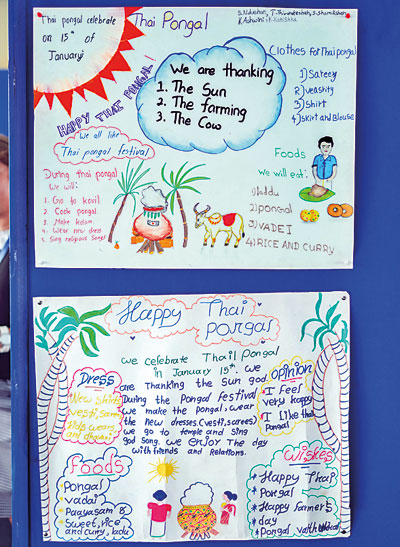 Thai pongal celebrate
on 15th of
January
Thai Pongal
HAPPY THAI PONGAL!
We are thanking
1. The Sun
2. The farming
3. The Cow
Clothes for Thai pongal
1) Sareey
2) veashity
3) shirt
4) skirt and Blouse
We all like
Thai pongal festival
During thai pongal
We will:
1. Go to kovil
2. Cook pongal
3. Make kolam
4. Wear new dress
5. Sing religious songs
Foods
We will eat:
1) laddu
2) pongal
3) VADEI
4) RICE AND CURRY
Happy Thai
pongal
We celebrate Thail Pongal
in January 15th. We
are Thanking the Sun god
During the Pongal festival
we make the pongal, wear
the new dresses (vesti, sarees)
we go to temple and sing
god song. we enjoy The day
with friends and Relations.
Dress
New shirts
vesti, sarees
Opinion
I Feel
very happy
I Like thai
Pongal
Foods
Pongal
vadai
Paayasam &
Sweet, rice
and curry, ladu
Wishes
Happy Thai
Pongal
Happy farmer's
day
Pongal